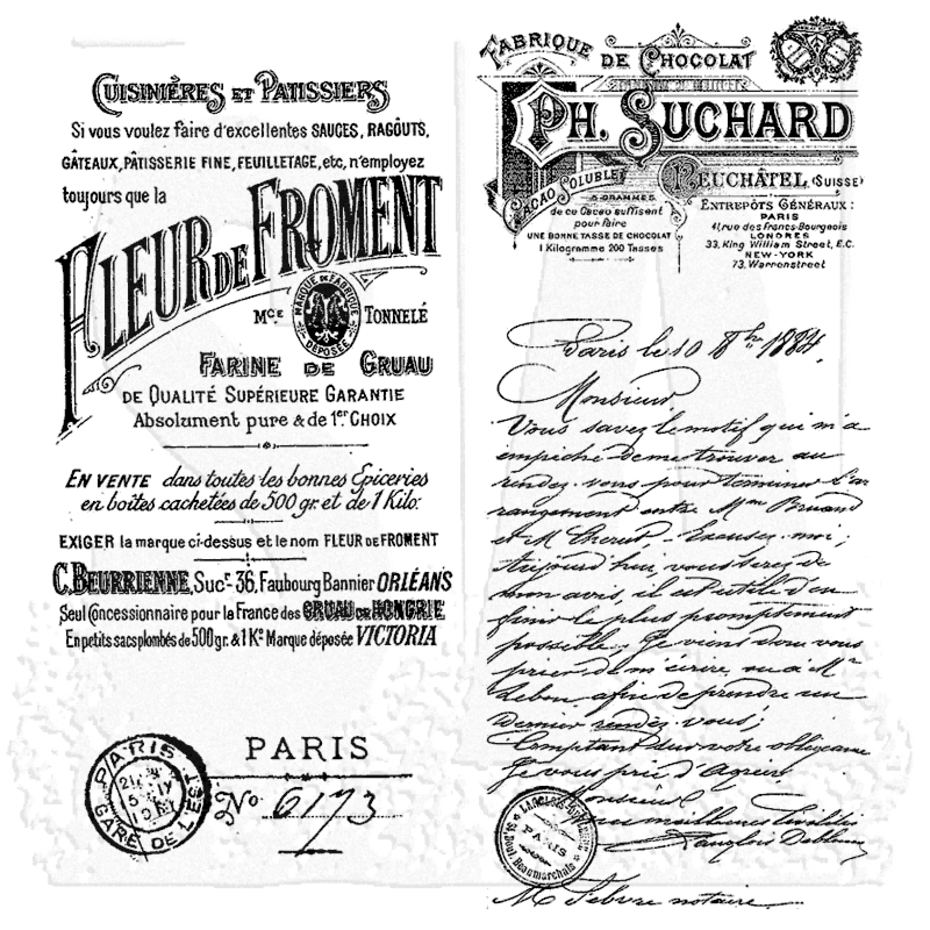 CUISINIÈRES ET PATISSIERS
Si vous voulez faire d'excellentes SAUCES, RAGÔUTS,
GÂTEAUX, PÂTISSERIE FINE, FEUILLETAGE, etc, n'employez
toujours que la
FLEUR DE FROMENT
MARQUE DE FABRIQUE
DÉPOSÉE
Mce TONNELÉ
FARINE DE GRUAU
DE QUALITÉ SUPÉRIEURE GARANTIE
Absolument pure & de 1er CHOIX
EN VENTE dans toutes les bonnes Epiceries
en boîtes cachetées de 500 gr. et de 1 Kilo.
EXIGER la marque ci-dessus et le nom FLEUR DE FROMENT
C. BEURRIENNE, Sucr 36, Faubourg Bannier ORLÉANS
Seul Concessionnaire pour la France des GRUAU DE HONGRIE
En petits sacs plombés de 500 gr. & 1 Ko Marque déposée VICTORIA
PARIS
GARE DE L'EST
PARIS
No. 6173
FABRIQUE DE CHOCOLAT
PH. SUCHARD
NEUCHÂTEL (SUISSE)
CACAO SOLUBLE
5 GRAMMES
de ce Cacao suffisent
pour faire
UNE BONNE TASSE DE CHOCOLAT
1 Kilogramme 200 Tasses
ENTREPÔTS GÉNÉRAUX :
PARIS
41, rue des Francs-Bourgeois
LONDRES
33, King William Street, E.C.
NEW-YORK
73, Warrenstreet
Paris le 10 8bre 1884.
Monsieur
Vous savez le motif qui m'a
empiché de me trouver au
rendez-vous pour terminer l'ar
rangement entre Mm Bruand
et M Cherut - Excusez-moi;
aujourd'hui, vous serez de
mon avis, il est utile d'en
finir le plus promptement
possible. Je viens donc vous
prier de m'écrire, ou à Mr
Lebon afin de prendre un
dernier rendez-vous;
Comptant sur votre obligeance
Je vous prie d'Agréer
Monsieur
meilleures
PARIS
Beaumarchais
M Lebvre notaire